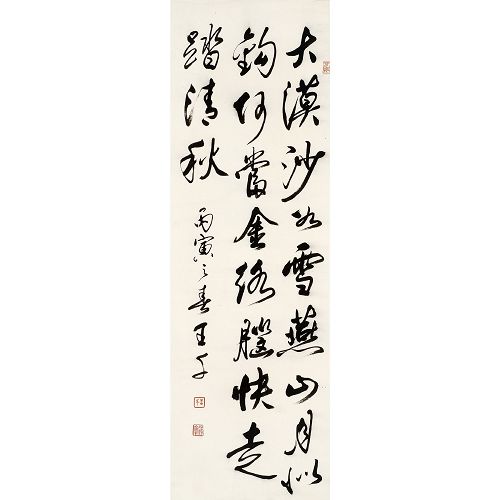 大漠沙如雪燕山月似
鉤何當金絡腦快走
踏清秋
丙寅之春王